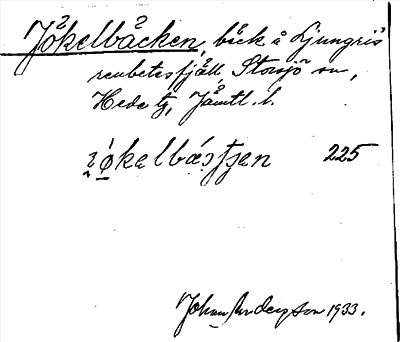 Jökelbäcken, bäck å Ljungris
renbetesfjäll, Storsjö sn,
Hede tg, Jämtl. l.
225
Johan Anderson 1933.